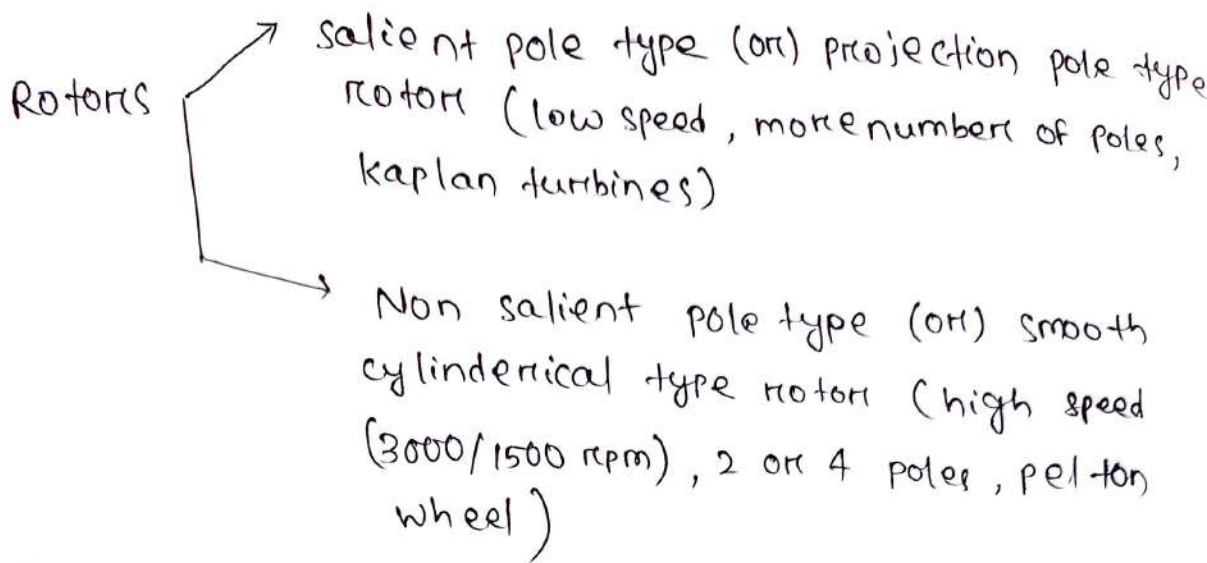 salient pole type (or) projection pole type
Rotors
rotor (low speed, more number of poles,
kaplan turbines)
Non salient pole type (or) smooth
cylinderical type rotor (high speed
(3000/1500 rpm), 2 or 4 poles, pelton
wheel)